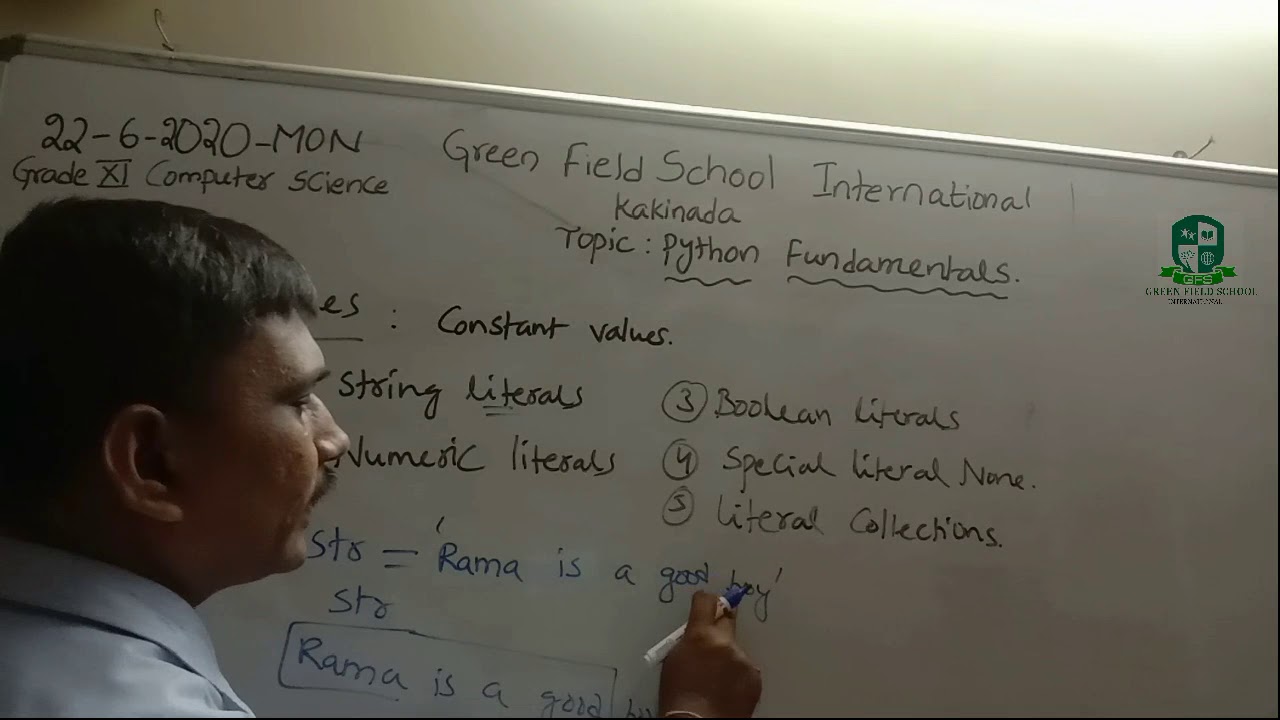 22-6-2020-MON
Grade XI Computer Science
Green Field School International
Kakinada
Topic: Python Fundamentals.
: Constant values.
String literals
Numeric literals
③ Boolean literals
④ Special literal None.
⑤ Literal Collections.
Str = 'Rama is a good boy'
Str
Rama is a good
GFS
GREEN FIELD SCHOOL
INTERNATIONAL